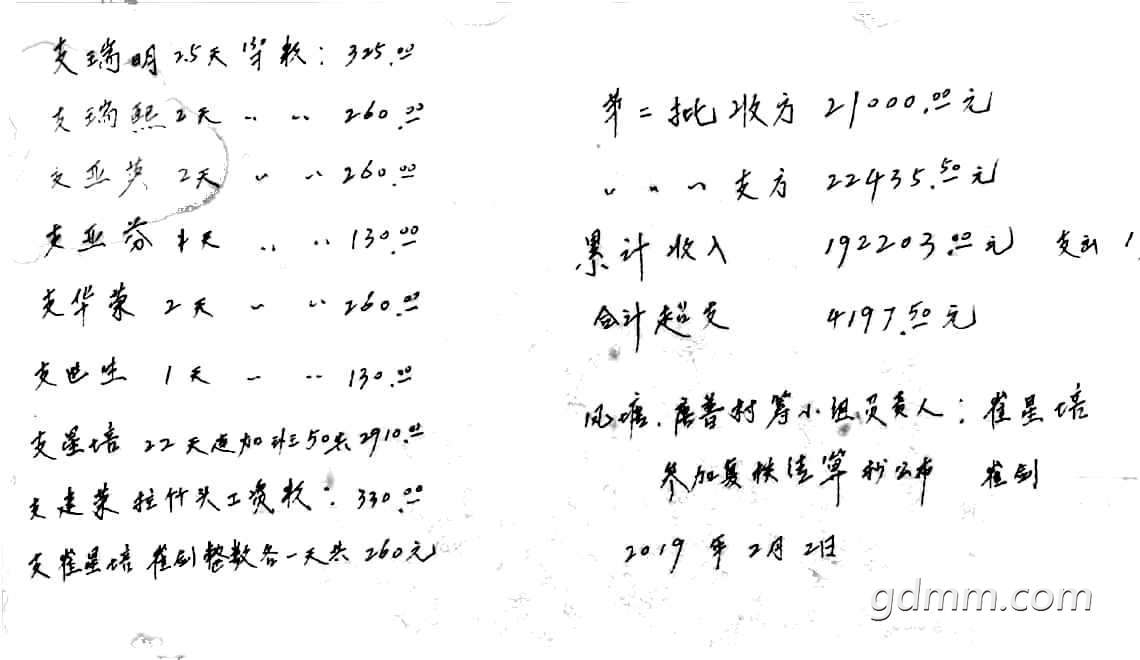 支瑞明 2.5天 130 款: 325.00
支瑞熙 2天 〃 〃 260.00
支亚英 2天 〃 〃 260.00
支亚芬 1天 〃 〃 130.00
支华荣 2天 〃 〃 260.00
支世生 1天 〃 〃 130.00
支星培 22天连加班50共2910.00
支建荣拉竹头工资款: 330.00
支崔星培 崔剑整数各一天共 260元
第二批收方 21000.00元
〃 〃 〃 支方 22435.50元
累计收入 192203.00元 支出 1
合计超支 4197.50元
凤塘、唐普村筹小组负责人: 崔星培
参加复核结算和公布 崔剑
2019年2月2日
gdmm.com